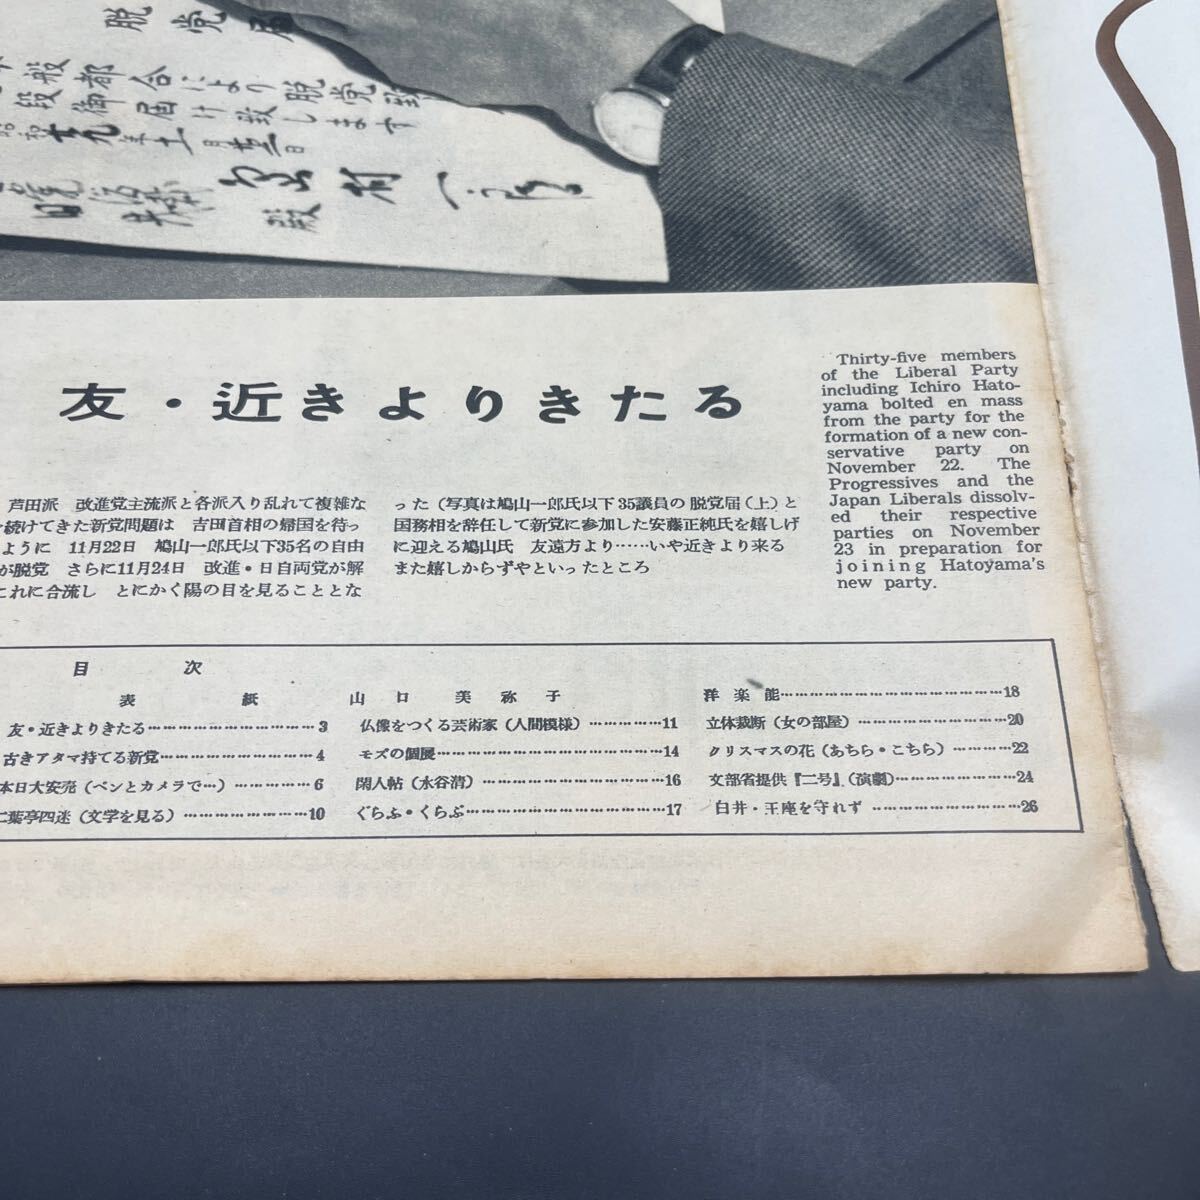 脱党届
般都合により脱党致
段御届け致します
昭和廿九年十一月廿二日
鳩山一郎
殿
友・近きよりきたる
芦田派　改進党主流派と各派入り乱れて複雑な
続けてきた新党問題は　吉田首相の帰国を待っ
ように　11月22日　鳩山一郎氏以下35名の自由
が脱党　さらに11月24日　改進・日自両党が解
これに合流し　とにかく陽の目を見ることとな
った（写真は鳩山一郎氏以下35議員の脱党届（上）と
国務相を辞任して新党に参加した安藤正純氏を嬉しげ
に迎える鳩山氏　友遠方より……いや近きより来る
また嬉しからずやといったところ
Thirty-five members
of the Liberal Party
including Ichiro Hato-
yama bolted en mass
from the party for the
formation of a new con-
servative party on
November 22. The
Progressives and the
Japan Liberals dissolv-
ed their respective
parties on November
23 in preparation for
joining Hatoyama's
new party.
目次
表紙　山口美弥子
友・近きよりきたる……3
古きアタマ持てる新党……4
本日大安売（ペンとカメラで…）……6
二葉亭四迷（文学を見る）……10
仏像をつくる芸術家（人間模様）……11
モズの個展……14
閑人帖（水谷清）……16
ぐらふ・くらぶ……17
洋楽能……18
立体裁断（女の部屋）……20
クリスマスの花（あちら・こちら）……22
文部省提供『二号』（演劇）……24
白井・王座を守れず……26